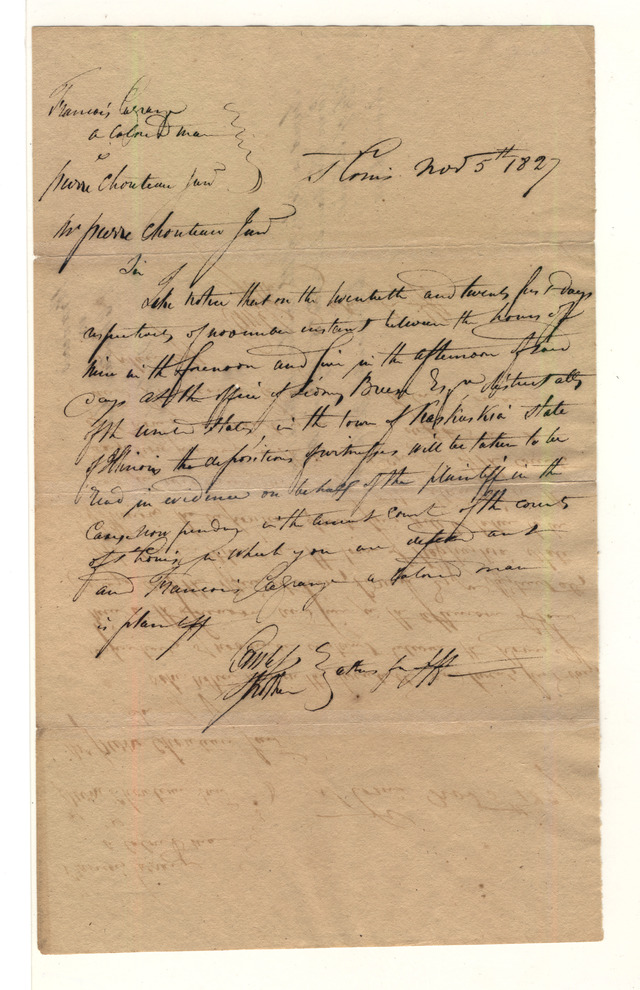 Francois Lagrange
a Colored man
vs
pierre Chouteau Junr
St Louis Nov 5th 1827
Mr pierre Chouteau Junr
Sir
Take notice that on the twentieth and twenty first days
respectively of november instant between the hours of
nine in the forenoon and five in the afternoon of said
days at the office of Sidney Breese Esqr district atty
of the united States in the town of Kaskaskia State
of Illinois the depositions of witnesses will be taken to be
read in evidence on behalf of the plaintiff in the
Cause now pending in the circuit court of the county
of St Louis in which you are defendant
and Francois Lagrange a Colored man
is plaintiff
Strother attys for plff